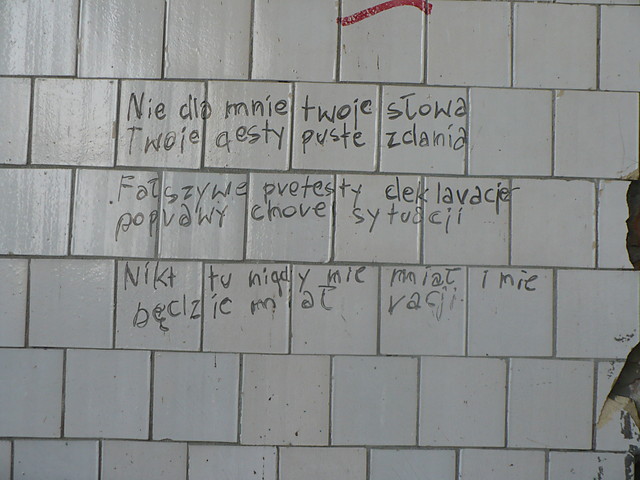 Nie dla mnie twoje słowa
Twoje gesty puste zdania
Fałszywe protesty deklaracje
poprawy chorej sytuacji
Nikt tu nigdy nie mniał i nie
będzie mniał racji